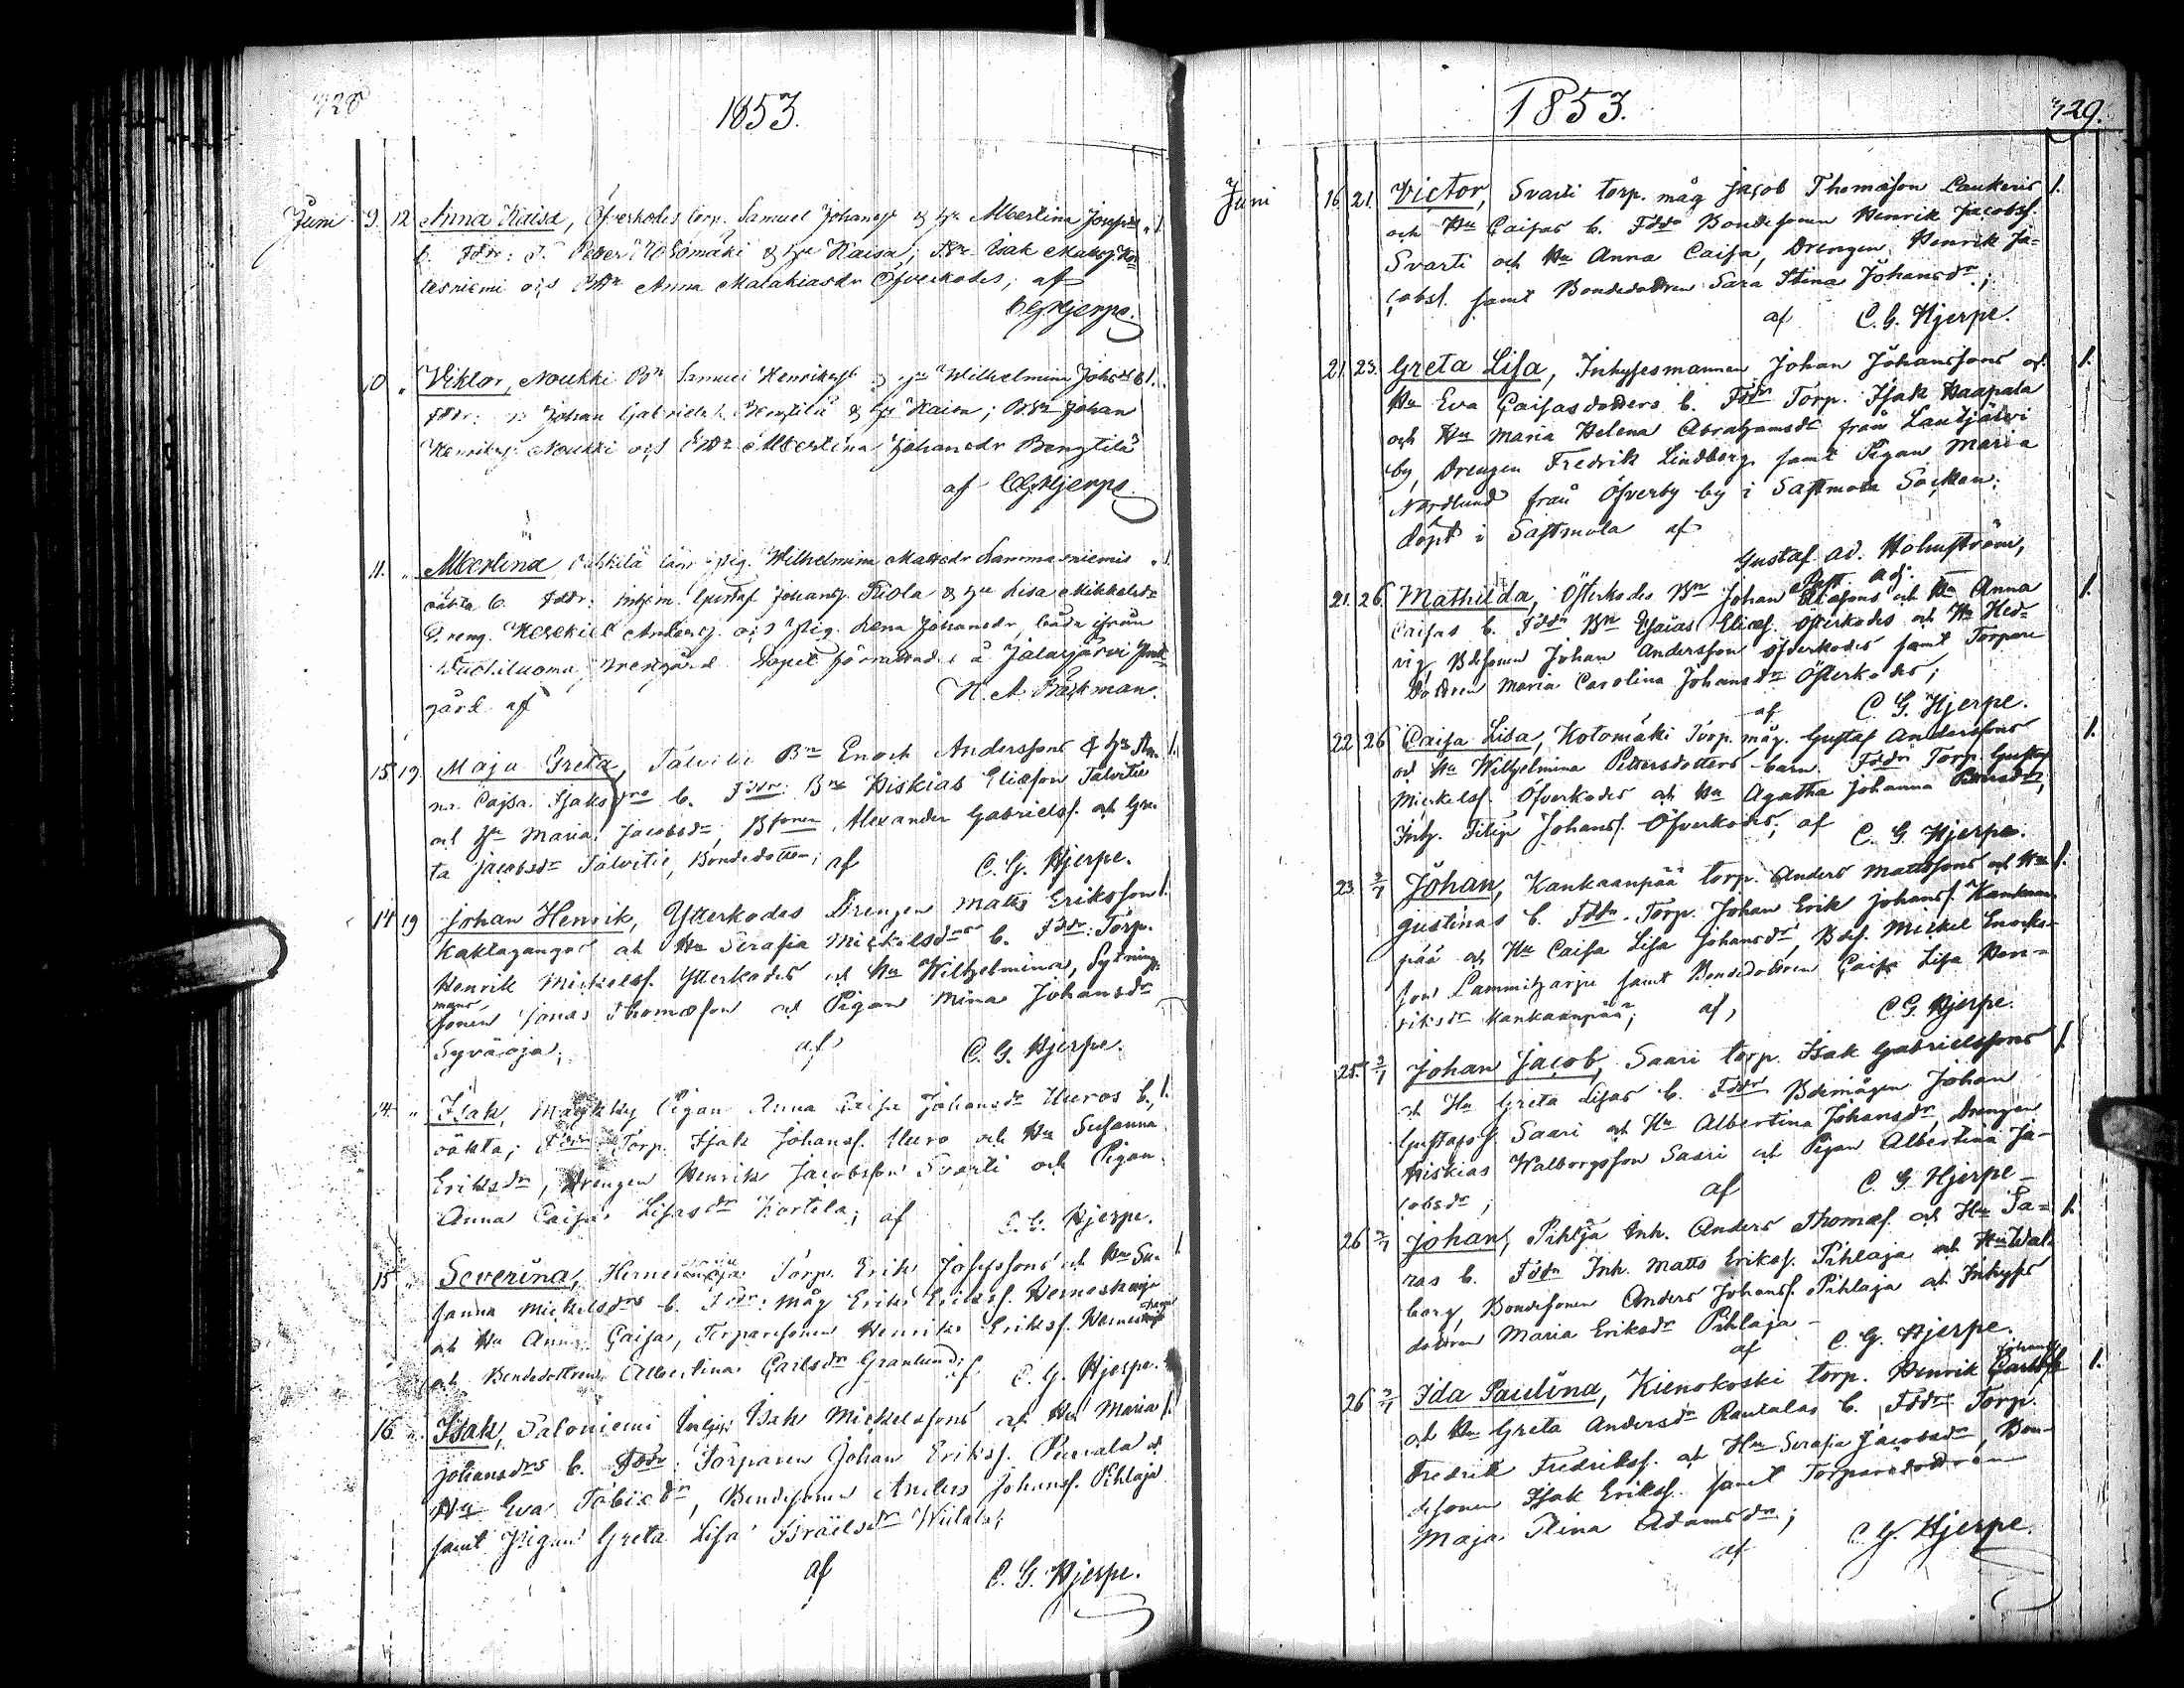 728
1853.
Juni 9. 12 Anna Kaisa, Öfverkodes torp. Samuel Johansf & Hu Albertina Josefsdrs 1.
b. Fddr: T. Petter Kotomäki & Hu Kaisa; Isak
Anna Malakiasdr Öfverkodes; af
CGHjerpe.
10 " Viktor, Noukki Bn Samuel Henriksf & Hu Wilhelmina Johsdrs b 1.
Fddr: Johan Gabrielsf. Bengtilä & Hu Kaisa; Johan
Henriksf. Noukki o. Albertina Johansdr Bengtilä
af CGHjerpe
11. " Albertina, pig. Wilhelmina Mattsdr Lammasniemis
oäkta b. Fddr: Gustaf Johansf. & Hu Lisa Mikkelsdr
Dreng. Hesekiel Andersf. o. pig. Lena Johansdr, båda ifrån
Dopet förrättades å Jalasjärvi Prest-
gård af N. A. Bäckman
15 19. Maja Greta, Talvitie Bn Enoch Anderssons & Hu An-
na Cajsa Isaksdrs b. Fddr: Bn Hiskias Eliasson Talvitie
och Hu Maria Jacobsdr, Bsonen Alexander Gabrielsf. och Gre-
ta Jacobsdr Talvitie, Bondedotter; af C. G. Hjerpe.
14 19 Johan Henrik, Ytterkodes Drengen Matts Eriksson 1.
Kaktaganger och Hu Serafia Mickelsdrs b. Fddr: Torp.
Henrik Mickelsf. Ytterkodes och Hu Wilhelmina, Sytnings
mans
sonen Jonas Thomasson och Pigan Mina Johansdr
Syväoja; af C. G. Hjerpe.
14. " Isak, Pigan Anna Caisa Johansdr Uuros b. 1.
oäkta; Fddr: Torp. Isak Johansf. Uuro och Hu Susanna
Eriksdr, Drengen Henrik Jacobsson Svarti och Pigan
Anna Caisa Lisasdr Kortela; af C. G. Hjerpe.
15 " Severina, Torp. Erik Josefssons och Hu Su- 1.
sanna Mickelsdrs b. Fddr: måg Erik Erikssf. Herneskanga
och Hu Anna Caisa, Torparesonen Henrik Eriksf.
och Bondedottren Albertina Carlsdr Granlund; af C. G. Hjerpe.
16. " Isak, Saloniemi Isak Mickelssons och Hu Maria 1.
Johansdrs b. Fddr: Torparen Johan Eriksf. och
Hu Eva Tobiasdr, Bondesonen Anders Johansf. Pihlaja
samt Pigan Greta Lisa Israelsdr
af C. G. Hjerpe.
1853. 729.
Juni 16. 21. Victor, Svarti torp. måg Jacob Thomasson Laukeris 1.
och Hu Caisas b. Fddr Bondesonen Henrik Jacobsf.
Svarti och Hu Anna Caisa, Drengen Henrik Ja-
cobsf. samt Bondedottren Sara Stina Johansdr;
af C. G. Hjerpe.
21. 23. Greta Lisa, Inhysesmannen Johan Johanssons och 1.
Hu Eva Caisasdotters b. Fddr Torp. Isak Haapala
och Hu Maria Helena Abrahamsdr från Lautjärvi
by, Drengen Fredrik Lindberg samt Pigan Maria
Nordlund från Öfverby by i Sastmola Socken.
döpt i Sastmola af
Gustaf Ad. Holmström,
Past. adj.
21. 26. Mathilda, Österkodes Bn Johan och Hu Anna 1.
Caisas b. Fddr Bn Esaias Eliasf. Österkodes och Hu Hed-
vig, Bdesonen Johan Andersson Österkodes samt Torpare
Dottren Maria Carolina Johansdr Österkodes;
af C. G. Hjerpe.
22 26 Caisa Lisa, Kotomäki Torp. måg. Gustaf Anderssons 1.
och Hu Wilhelmina Pettersdotters barn. Fddr Torp Gustaf
Mickelsf. Öfverkodes och Hu Agatha Johanna
Inh. Filip Johansf. Öfverkodes; af C. G. Hjerpe.
23. 3/7 Johan, Kankaanpää torp. Anders Mattssons och Hu 1.
Gustinas b. Fddr. Torp. Johan Erik Johansf. Kankaan-
pää och Hu Caisa Lisa Johansdr, Bdes. Mickel Enocks-
son Lammiharju samt Bondedottren Caisa Lisa Hen-
riksdr Kankaanpää; af, C. G. Hjerpe.
25. 3/7 Johan Jacob, Saari torp. Isak Gabrielssons 1.
och Hu Greta Lisas b. Fddr Bdemågen Johan
Gustafsf. Saari och Hu Albertina Johansdr, Drengen
Hiskias Walborgsson Saari och Pigan Albertina Ja-
cobsdr; af C. G. Hjerpe
26 3/7 Johan, Pihlja Inh. Anders Thomasf. och Hu Sa- 1.
ras b. Fddr Inh. Matts Eriksf. Pihlaja och Hu Wal-
borg, Bondesonen Anders Johansf. Pihlaja och Inhyses
dottren Maria Eriksdr Pihlaja
af C. G. Hjerpe.
26 3/7 Ida Paulina, Kienokoski torp. Henrik 1.
och Hu Greta Andersdr Rautalas b. Fddr Torp.
Fredrik Fredriksf. och Hu Serafia Jacobsdr, Bon-
desonen Isak Eriksf. samt Torparedottren
Maja Stina Adamsdr;
af C. G. Hjerpe.